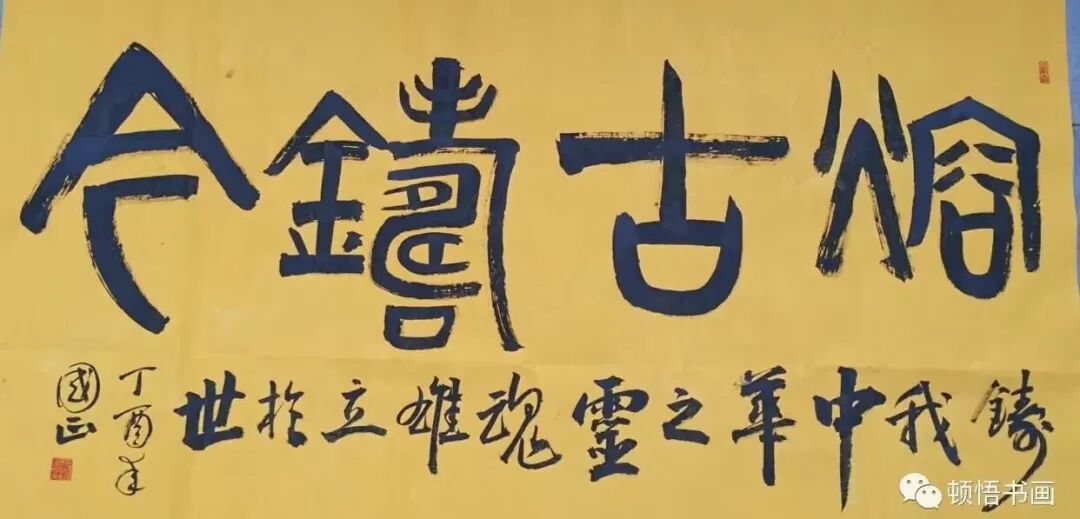 熔古鑄今
鑄我中華之靈魂雄立於世
丁酉年
國正
顿悟书画